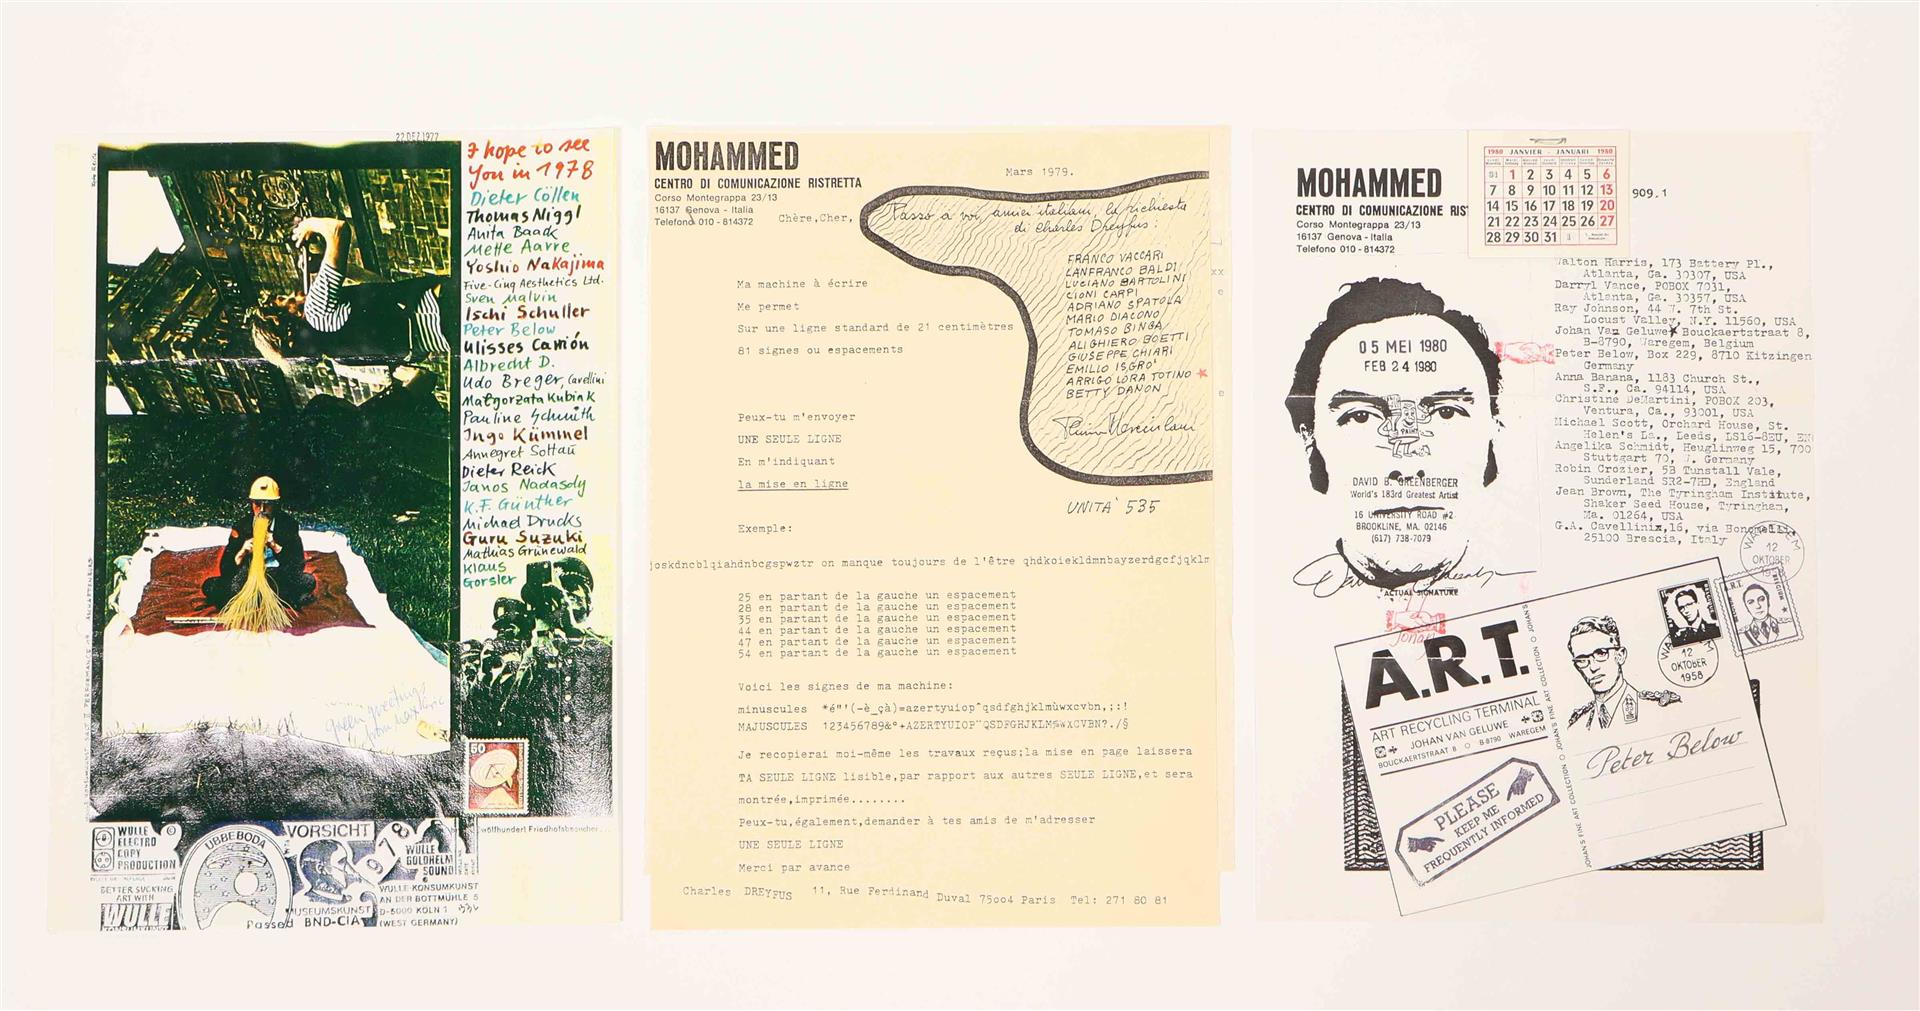 22 DEZ 1977
I hope to see
you in 1978
Dieter Cöllen
Thomas Niggl
Anita Baack
Mette Aarre
Yoshio Nakajima
Five-Cinq Aesthetics Ltd.
Sven Malvin
Ischi Schuller
Peter Below
Ulisses Carrión
Albrecht D.
Udo Breger, Cavellini
Małgorzata Kubiak
Pauline Schmith
Ingo Kümmel
Annegret Soltau
Dieter Reick
Janos Nadasdy
K.F. Günther
Michael Drucks
Guru Suzuki
Mathias Grünewald
Klaus
Gorsler
green greetings
from
50
zwölfhundert Friedhofsbesucher...
WULLE
ELECTRO
COPY
PRODUCTION
UBBEBODA
VORSICHT
1978
WULLE
GOLDHELM
SOUND
BETTER SUCKING
ART WITH
WULLE
WULLE-KONSUMKUNST
AN DER BOTTMÜHLE 5
D-5000 KÖLN 1
(WEST GERMANY)
MUSEUMSKUNST
Passed BND-CIA
MOHAMMED
CENTRO DI COMUNICAZIONE RISTRETTA
Corso Montegrappa 23/13
16137 Genova - Italia
Telefono 010 - 814372
Mars 1979.
Chère, Cher,
Passo a voi, amici italiani, la richiesta
di Charles Dreyfus:
FRANCO VACCARI
LANFRANCO BALDI
LUCIANO BARTOLINI
CIONI CARPI
ADRIANO SPATOLA
MARIO DIACONO
TOMASO BINGA
ALIGHIERO BOETTI
GIUSEPPE CHIARI
EMILIO ISGRO'
ARRIGO LORA TOTINO
BETTY DANON
UNITÀ 535
Ma machine à écrire
Me permet
Sur une ligne standard de 21 centimètres
81 signes ou espacements
Peux-tu m'envoyer
UNE SEULE LIGNE
En m'indiquant
la mise en ligne
Exemple:
joskdncblqiahdnbcgspwztr on manque toujours de l'être qhdkoiekldmnbayzerdgcfjqklm
25 en partant de la gauche un espacement
28 en partant de la gauche un espacement
35 en partant de la gauche un espacement
44 en partant de la gauche un espacement
47 en partant de la gauche un espacement
54 en partant de la gauche un espacement
Voici les signes de ma machine:
minuscules *é"'(-è_çà)=azertyuiop^qsdfghjklmùwxcvbn,;:!
MAJUSCULES 123456789&°+AZERTYUIOP¨QSDFGHJKLM%WXCVBN?./§
Je recopierai moi-même les travaux reçus;la mise en page laissera
TA SEULE LIGNE lisible,par rapport aux autres SEULE LIGNE,et sera
montrée,imprimée........
Peux-tu,également,demander à tes amis de m'adresser
UNE SEULE LIGNE
Merci par avance
Charles DREYFUS 11, Rue Ferdinand Duval 75004 Paris Tel: 271 80 81
MOHAMMED
CENTRO DI COMUNICAZIONE RIST
Corso Montegrappa 23/13
16137 Genova - Italia
Telefono 010 - 814372
1980 JANVIER - JANUARI 1980
31 1 2 3 4 5 6
7 8 9 10 11 12 13
14 15 16 17 18 19 20
21 22 23 24 25 26 27
28 29 30 31
909.1
Walton Harris, 173 Battery Pl.,
Atlanta, Ga. 30307, USA
Darryl Vance, POBOX 7031,
Atlanta, Ga. 30357, USA
Ray Johnson, 44 W. 7th St.
Locust Valley, N.Y. 11560, USA
Johan Van Geluwe Bouckaertstraat 8,
B-8790, Waregem, Belgium
Peter Below, Box 229, 8710 Kitzingen
Germany
Anna Banana, 1183 Church St.,
S.F., Ca. 94114, USA
Christine DeMartini, POBOX 203,
Ventura, Ca., 93001, USA
Michael Scott, Orchard House, St.
Helen's La., Leeds, LS16-8EU, EN
Angelika Schmidt, Heuglinweg 15, 700
Stuttgart 70, W. Germany
Robin Crozier, 5B Tunstall Vale,
Sunderland SR2-7HD, England
Jean Brown, The Tyringham Institute,
Shaker Seed House, Tyringham,
Ma. 01264, USA
G.A. Cavellinix,16, via Bonomelli
25100 Brescia, Italy
05 MEI 1980
FEB 24 1980
PAINT
DAVID B. GREENBERGER
World's 183rd Greatest Artist
16 UNIVERSITY ROAD #2
BROOKLINE, MA. 02146
(617) 738-7079
ACTUAL SIGNATURE
Johan
A.R.T.
ART RECYCLING TERMINAL
JOHAN VAN GELUWE
BOUCKAERTSTRAAT 8 B-8790 WAREGEM
PLEASE
KEEP ME
FREQUENTLY INFORMED
JOHAN'S FINE ART COLLECTION O JOHAN'S FINE ART COLLECTION O JOHAN'S
12
OKTOBER
1958
WAREGEM
12
OKTOBER
Peter Below